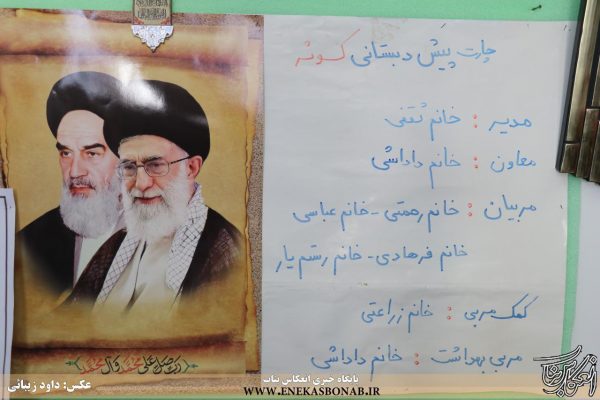 چارت پیش دبستانی کوثر
مدیر : خانم ثقفی
معاون : خانم داداشی
مربیان : خانم رحمتی - خانم عباسی
خانم فرهادی - خانم رستم یار
کمک مربی : خانم زراعتی
مربی بهداشت : خانم داداشی
اللهم صل علی محمد وآل محمد
عکس: داود زیبائی
پایگاه خبری انعکاس بناب
WWW.ENEKASBONAB.IR
انعکاس بناب